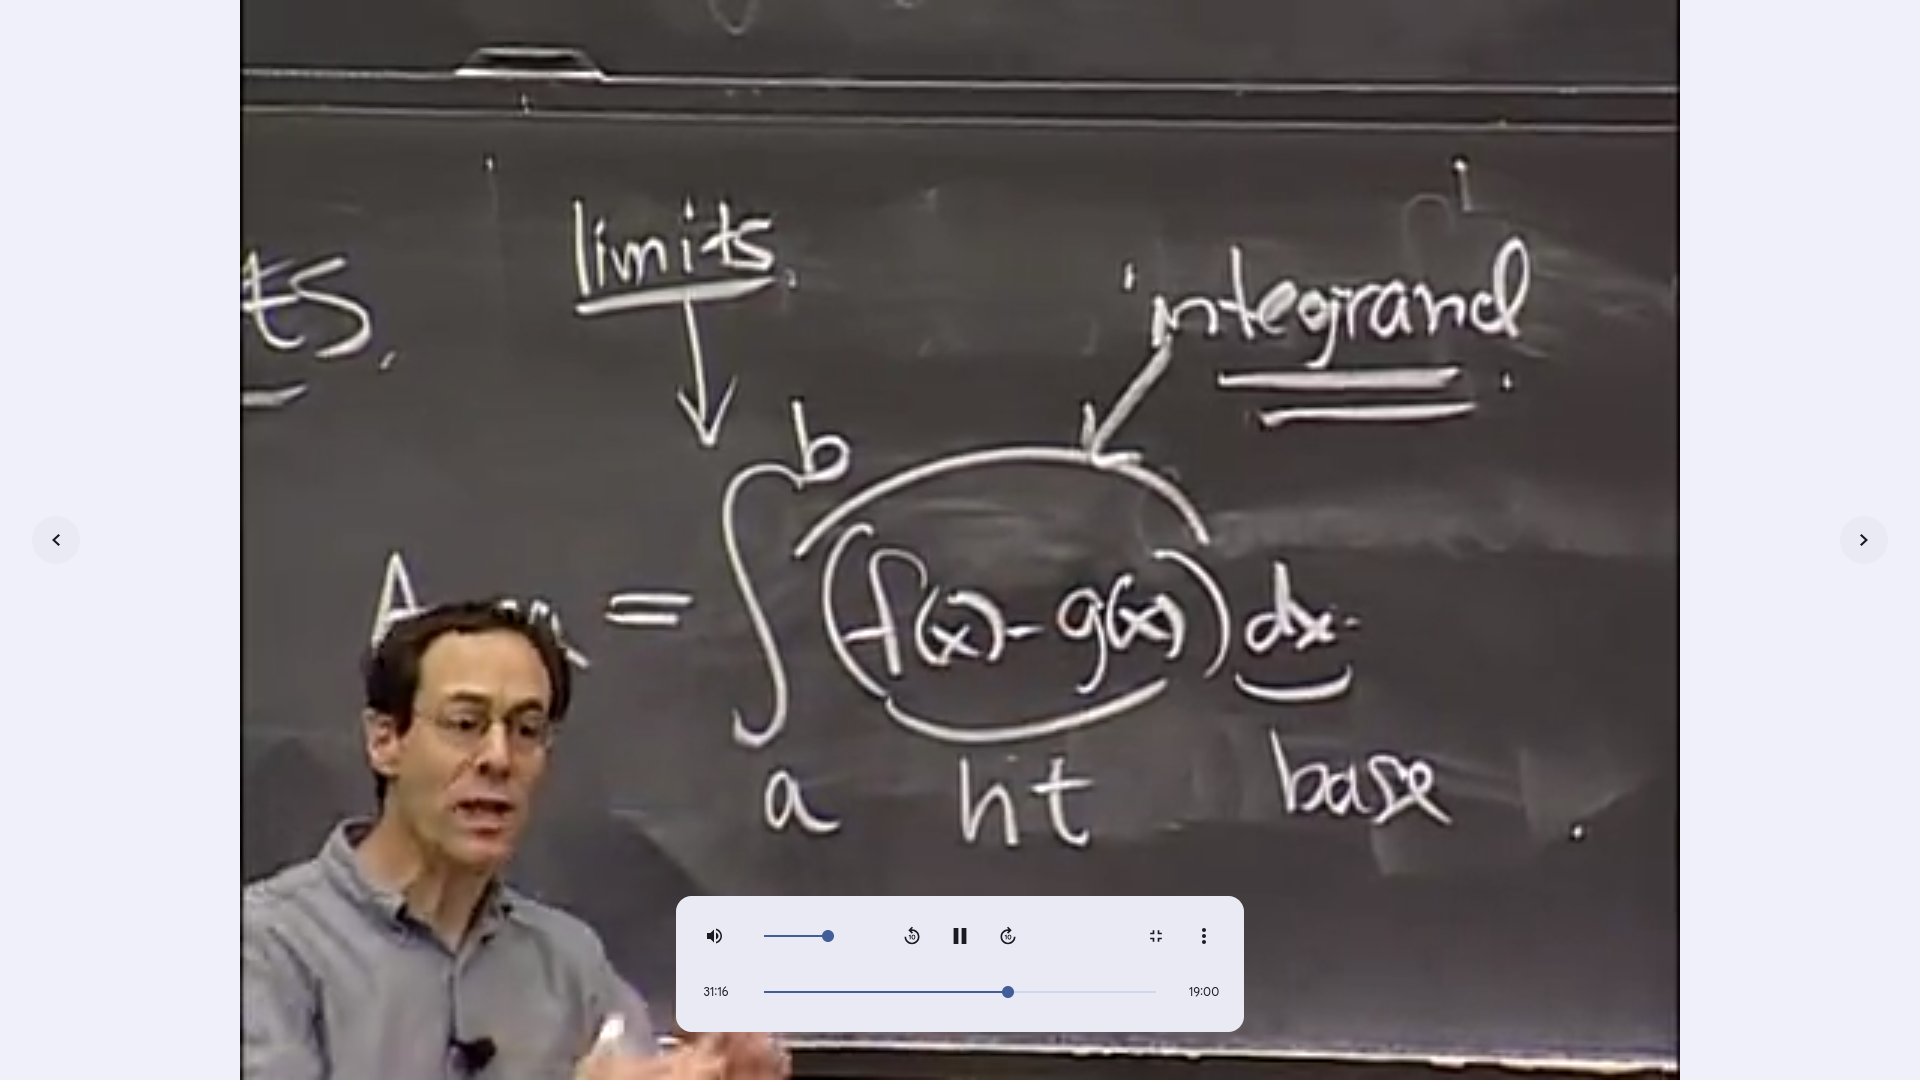 limits
integrand
ts
b
= ∫ (f(x) - g(x)) dx
a
ht
base
10
10
31:16
19:00